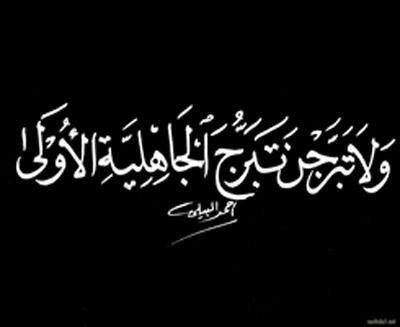 وَلَا تَبَرَّجْنَ تَبَرُّجَ الْجَاهِلِيَّةِ الْأُولَى
احمد البيلي